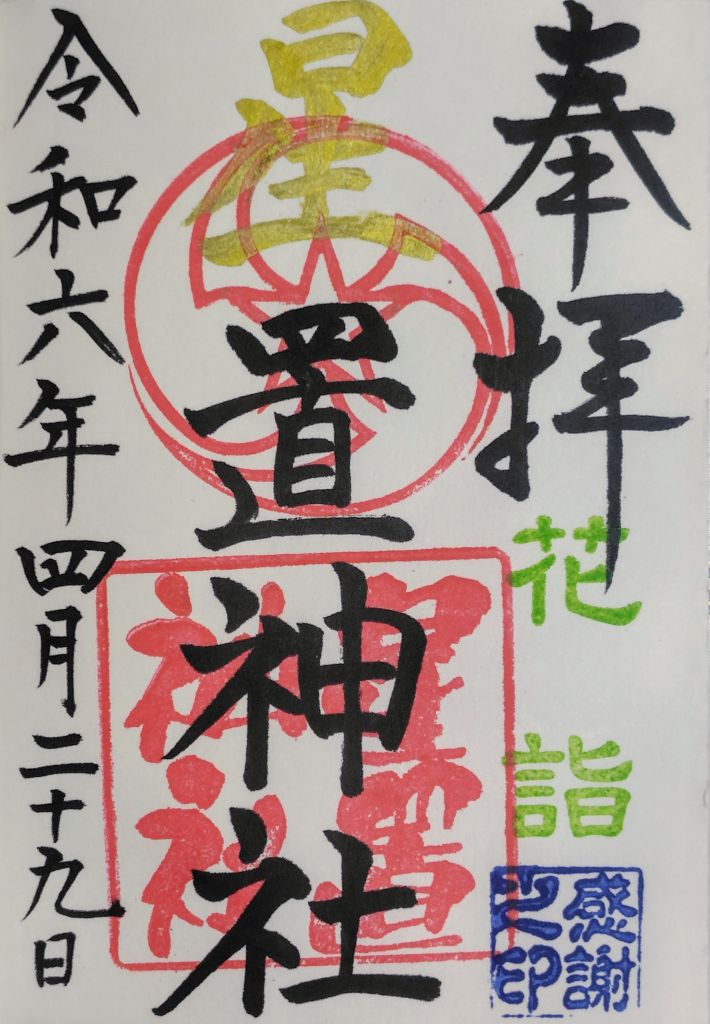 奉拝
花詣
感謝
之印
星置神社
星置
神社
令和六年四月二十九日